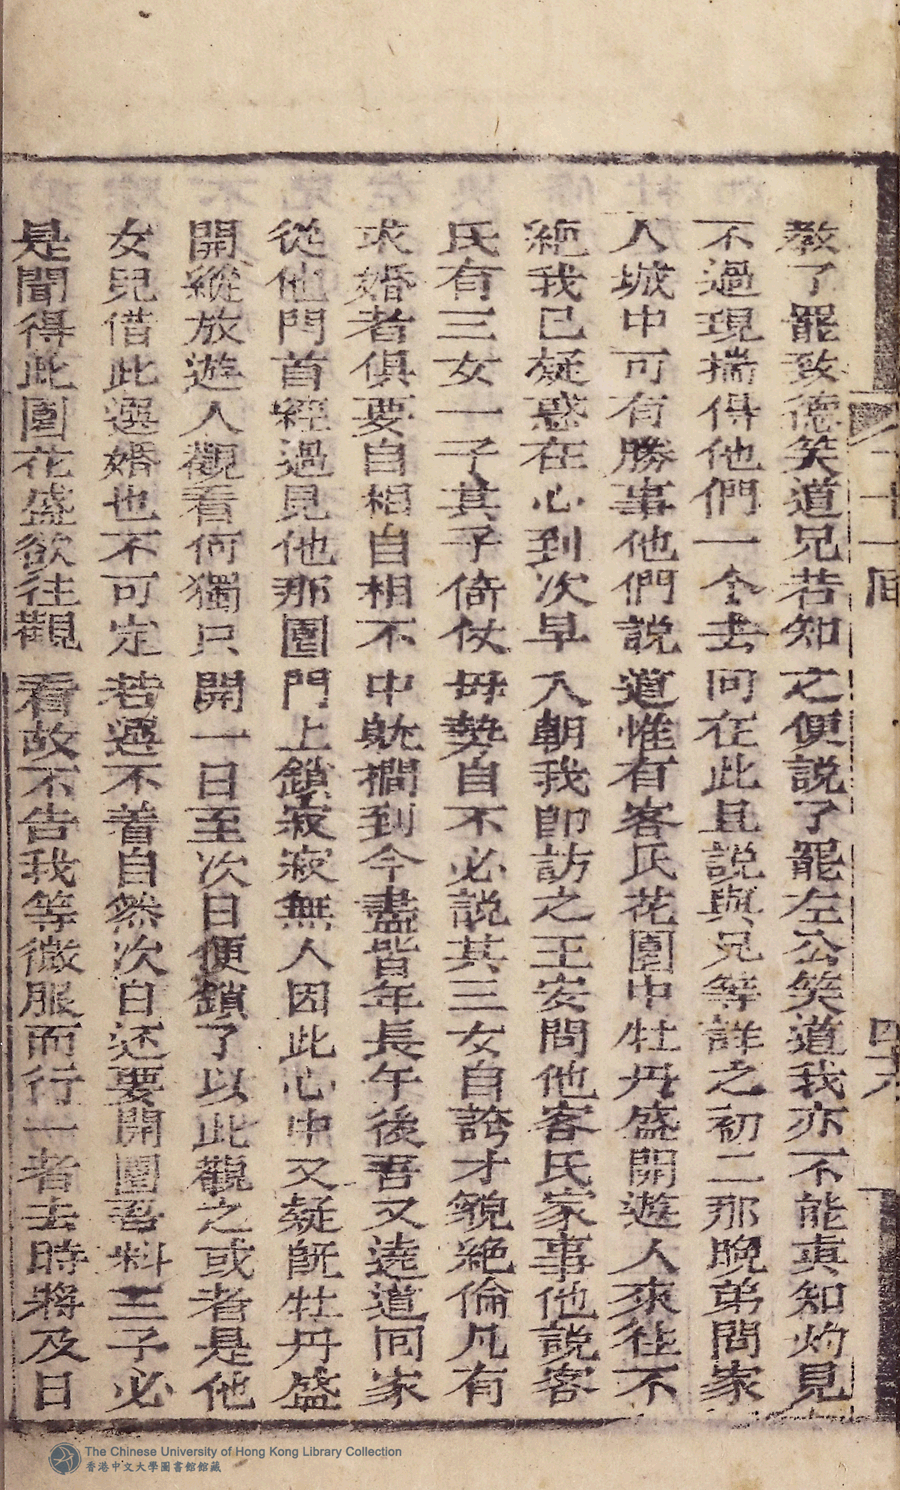 二十一回
四六
教了罷致德笑道兄若知之便説了罷左公笑道我亦不能真知灼見
不過現揣得他們一个去向在此且説與兄等詳之初二那晚弟問家
人城中可有勝事他們説道惟有客氏花園中牡丹盛開遊人來往不
絶我已疑惑在心到次早入朝我即訪之王安問他客氏家事他説客
氏有三女一子其子倚仗母勢自不必説其三女自誇才貌絶倫凡有
求婚者俱要自相自相不中既擱到今盡皆年長午後吾又遶道回家
從他門首經過見他那園門上鎖寂寂無人因此心中又疑既牡丹盛
開縱放遊人觀看何獨只開一日至次日便鎖了以此觀之或者是他
女兒借此選婚也不可定若選不着自然次日还要開園吾料三子必
是聞得此園花盛欲往觀看故不告我等微服而行一者去時將及日
The Chinese University of Hong Kong Library Collection
香港中文大學圖書館館藏